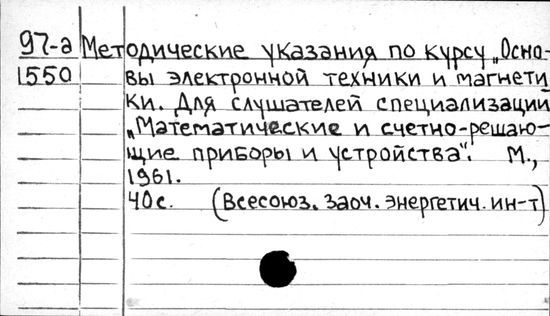 97-а Методические указания по курсу „Осно-
1550 вы электронной техники и магнети
ки. Для слушателей специализации
„Математические и счетно-решаю-
щие приборы и устройства". М.,
1961.
40с. (Всесоюз. заоч. энергетич. ин-т)